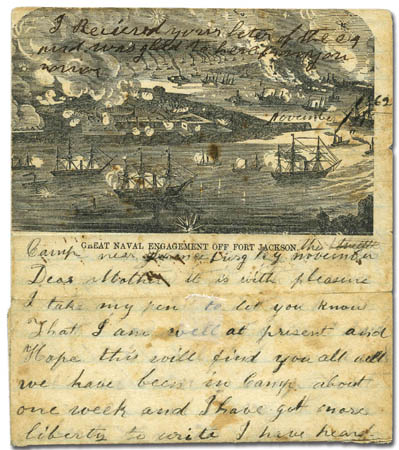 I Recieved your leter of the 29
and was glad to hear from you
November
1862
GREAT NAVAL ENGAGEMENT OFF FORT JACKSON.
the
Camp near burg Ky november
Dear Mother it is with pleasure
I take my pen to let you know
That I am well at present and
Hope this will find you all well
we have been in Camp about
one week and I have got more
liberty to write I have heard